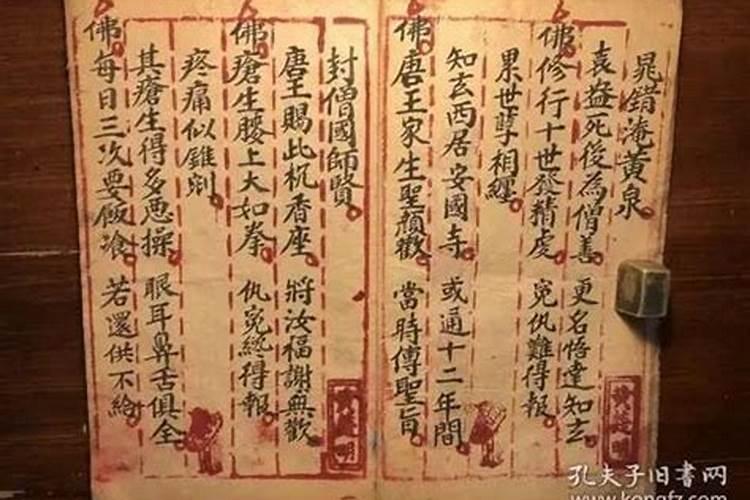 晁錯淹黄泉
袁益死後為僧善 更名悟達知玄
佛修行十世發精虔 寃仇難得報
累世孽相纏
知玄西居安國寺 或通十二年間
佛唐王家生聖顏歡 當時傳聖旨
封僧國師賢
唐王賜此杌香座 將汝福謝無歡
佛瘡生腰上大如拳 仇寃終得報
疼痛似錐剜
其瘡生得多恶操 眼耳鼻舌俱全
佛每日三次要飯飡 若還供不給
孔夫子旧书网